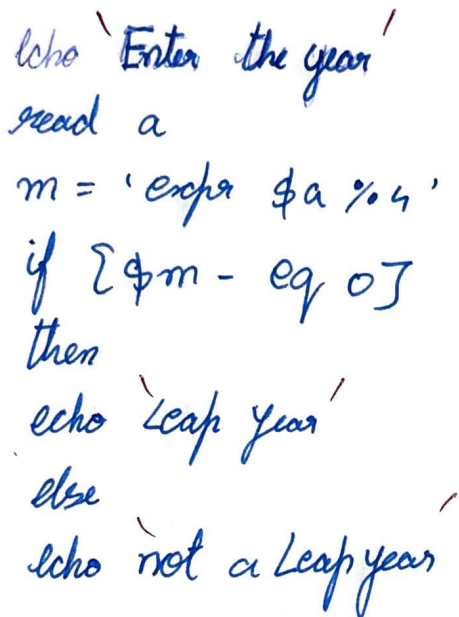 echo 'Enter the year'
read a
m = 'expr $a % 4'
if [$m - eq 0]
then
echo 'Leap year'
else
echo 'not a Leap year'